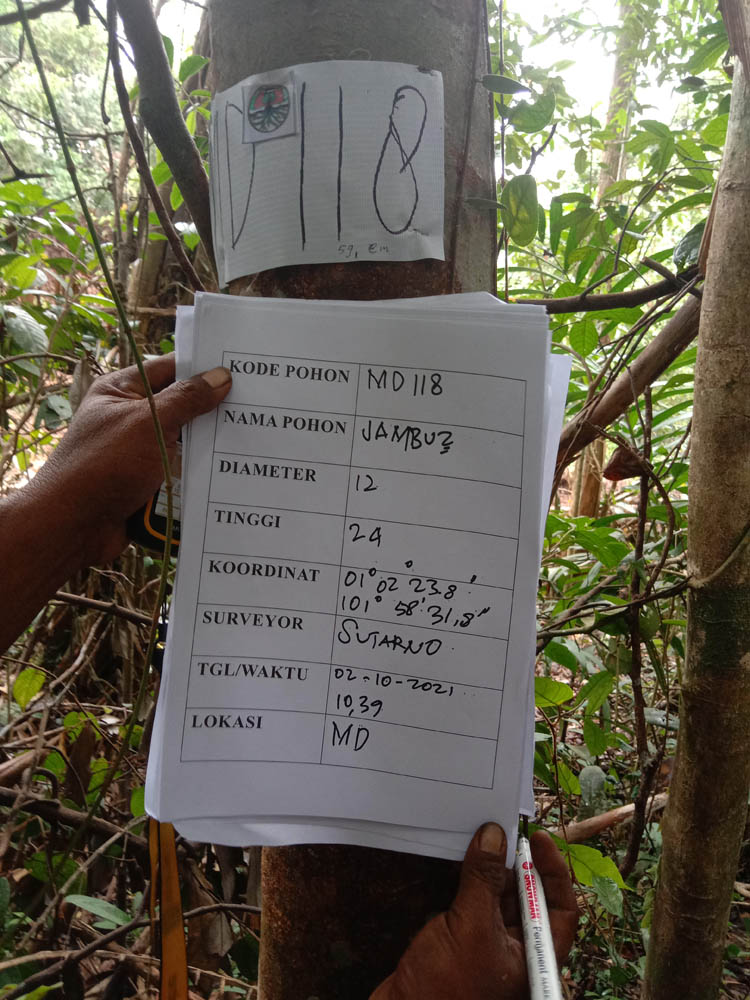 D 118
59, Cm
KODE POHON MD 118
NAMA POHON JAMBU2
DIAMETER 12
TINGGI 24
KOORDINAT 01° 02° 23.8'
101° 58' 31,8"
SURVEYOR SUTARNO.
TGL/WAKTU 02-10-2021
10,39
LOKASI MD
Permanent